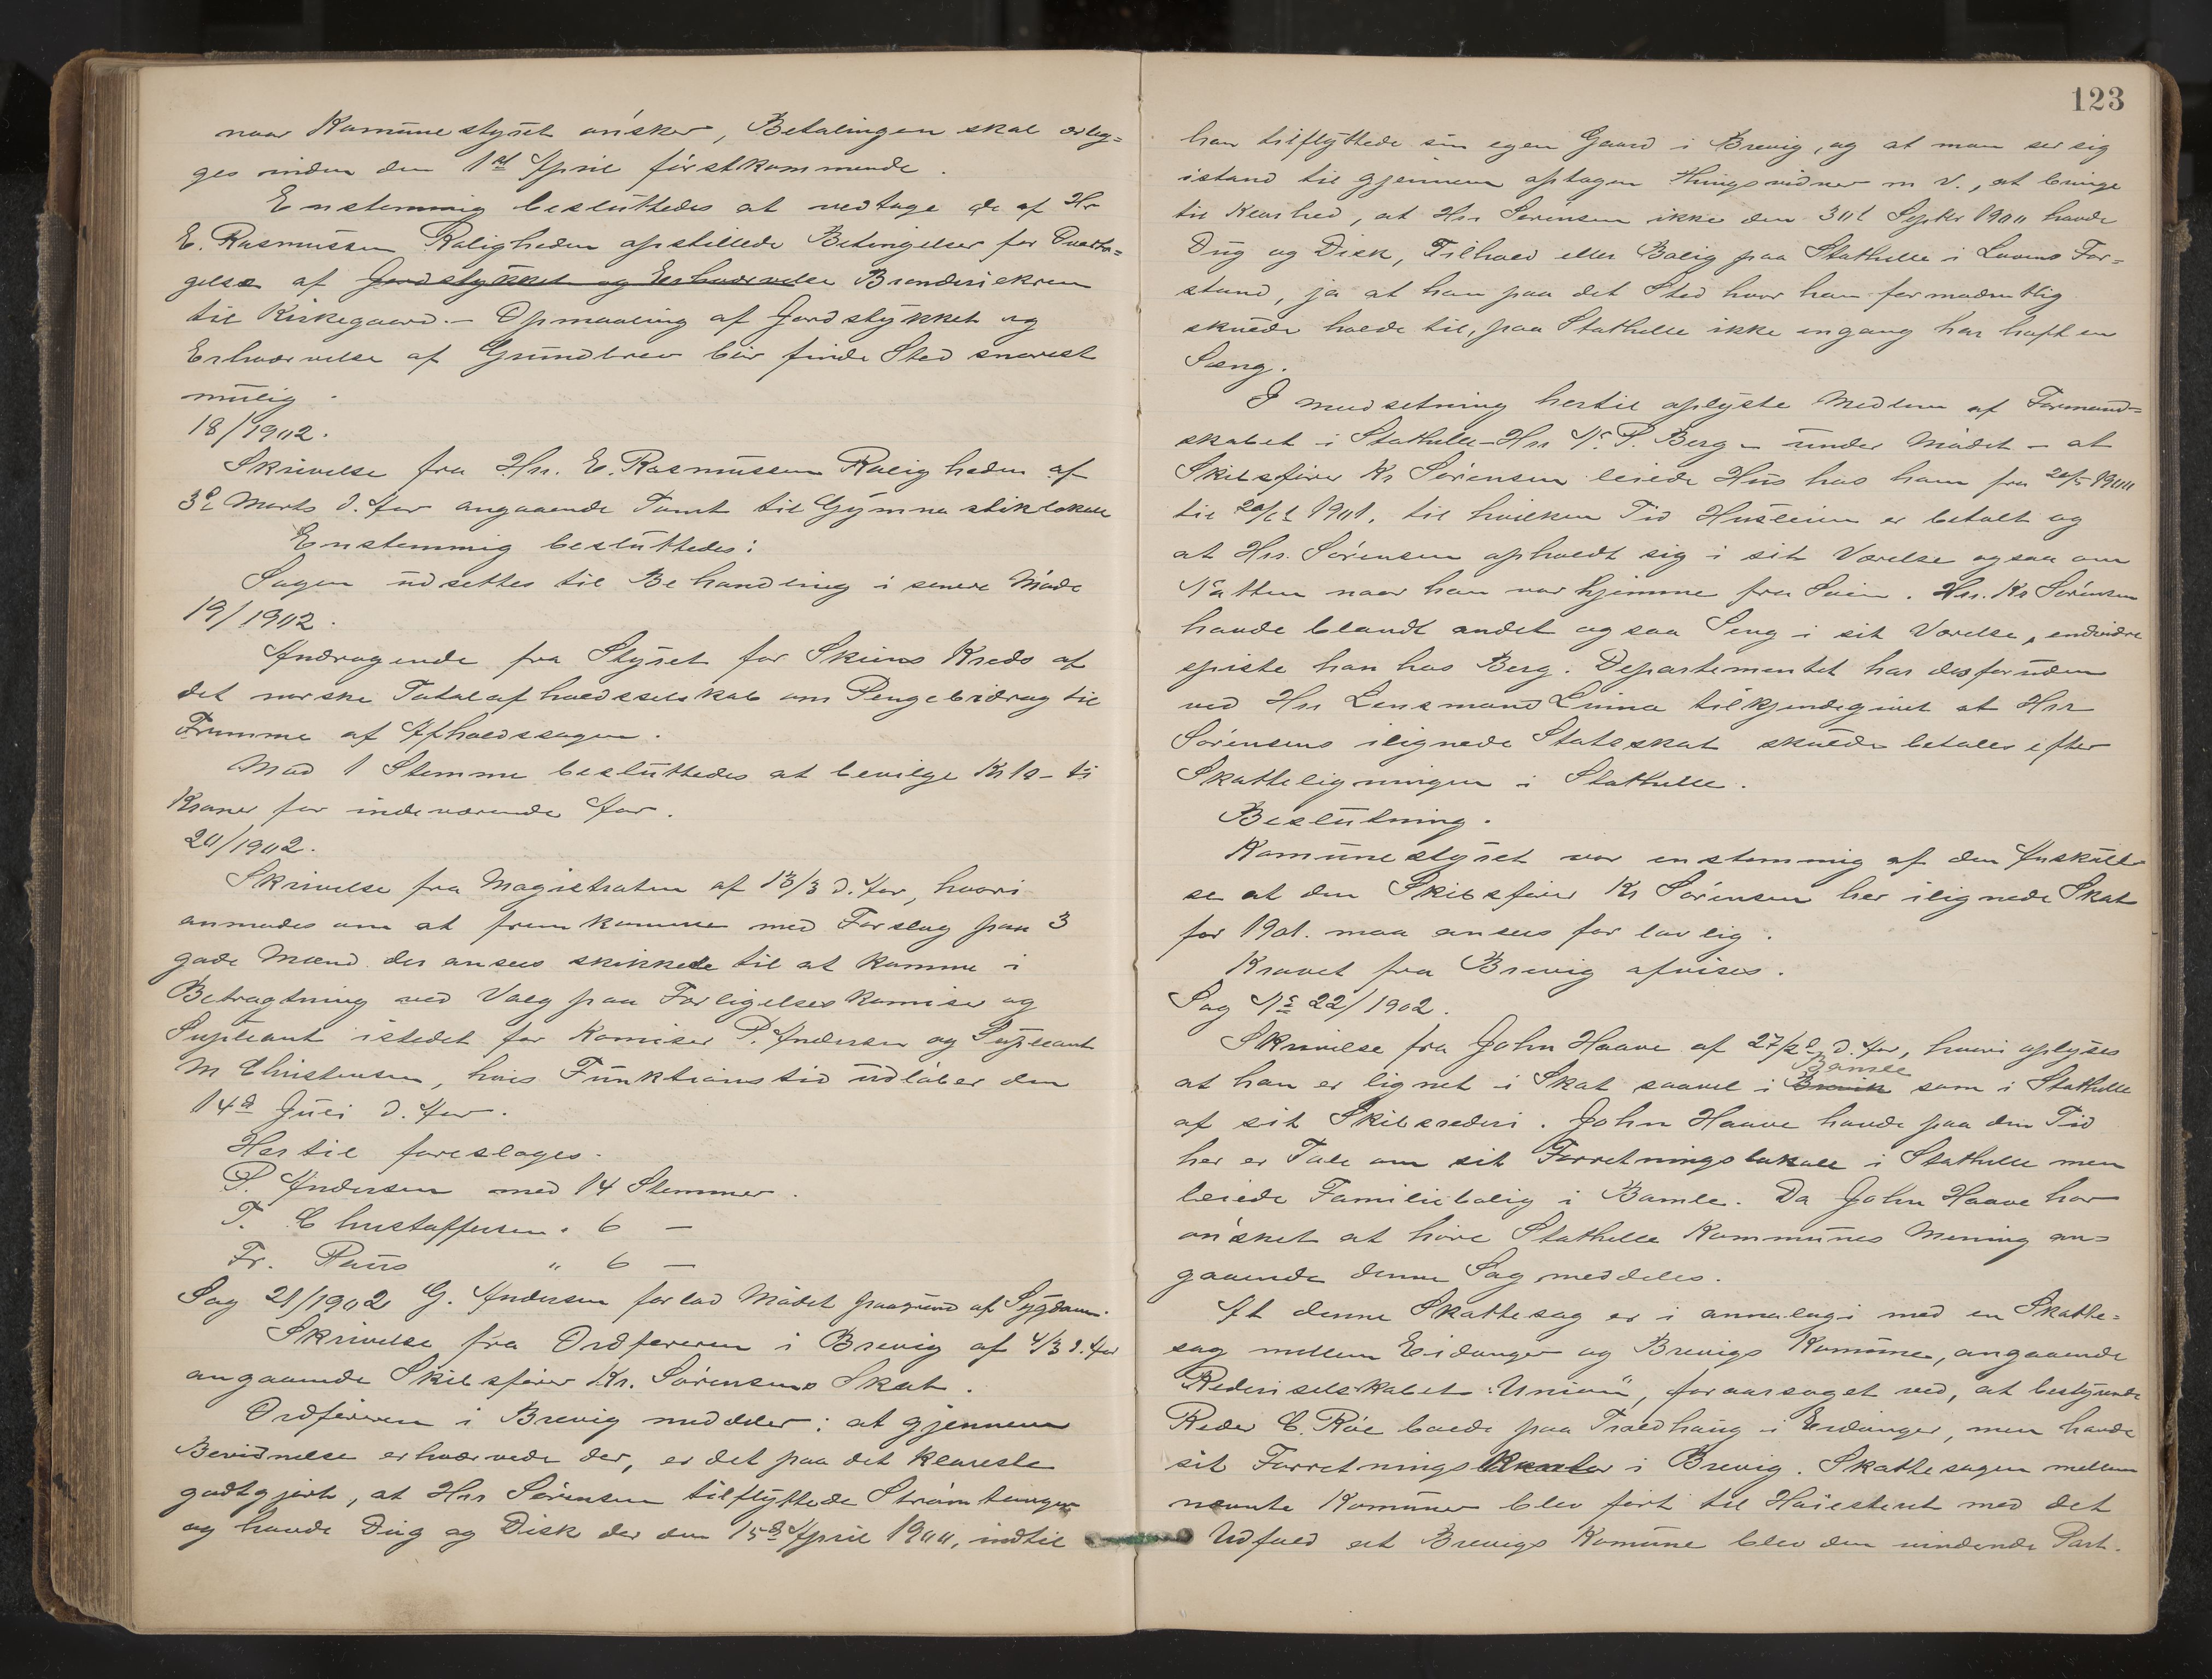 naar Kommunestyret ønsker, Betalingen skal erlæg=
ges inden den 1ste April førstkommende.
Enstemmig besluttedes at vedtage de af Hr
E. Rasmussen Roligheden opstillede Betingelser for Overta=
gelse af Jordstykket og Erhvervelse Brønderiekren
til Kirkegaard. - Opmaaling af Jordstykket og
Erhvervelse af Grundbrev bør finde Sted snarest
mulig.
18/1902.
Skrivelse fra Hr. E. Rasmussen Roligheden af
3de Marts d. Aar angaaende Tomt til Gymnastiklokale
Enstemmig besluttedes:
Sagen udsettes til Behandling i senere Møde
19/1902.
Andragende fra Styret for Skiens Kreds af
det norske Totalafholdsselskab om Pengebidrag til
Fremme af Afholdssagen.
Mod 1 Stemme besluttedes at bevilge Kr 10 - ti
Kroner for indeværende Aar.
20/1902.
Skrivelse fra Magistraten af 13/3 d. Aar, hvori
anmodes om at fremkomme med Forslag paa 3
gode Mænd der ansees skikkede til at komme i
Betragtning ved Valg paa Forligelseskomisær og
Supleant istedet for Komisær P. Andersen og Supleant
M Christensen, hvis Funktionstid udløber den
14de Juli d. Aar.
Hertil foreslages.
P. Andersen med 14 Stemmer.
T. Christoffersen " 6 —
Fr. Paus " 6 —
Sag 21/1902 G. Andersen forlod Mødet paagrund af Sygdom.
Skrivelse fra Ordføreren i Brevig af 4/3 d. Aar
angaaende Skibsfører Kr. Sørensens Skat.
Ordføreren i Brevig meddeler: at gjennem
Bevidnelse erhvervede der, er det paa det klareste
godtgjort, at Hr Sørensen tilflyttede Strømtangen
og havde Dug og Disk der den 15de April 1900, indtil
123
han tilflyttede sin egen Gaard i Brevig, og at man ser sig
istand til gjennem optagen Thingsvidner m v., at bringe
til Klarhed, at Hr Sørensen ikke den 30te Septbr 1900 havde
Dug og Disk, Tilhold eller Bolig paa Stathelle i Lovens For=
stand, ja at han paa det Sted hvor han formodentlig
skulde holde til, paa Stathelle ikke engang har haft en
Seng.
I modsetning hertil oplyste Medlem af Formand=
skabet i Stathelle - Hr N. P. Berg - under Mødet - at
Skibsfører Kr Sørensen leiede Hus hos ham fra 20/5 1900
til 20/6 1901. til hvilken Tid Husleien er betalt og
at Hr. Sørensen opholdt sig i sit Værelse ogsaa om
Natten naar han var hjemme fra Søen. Hr. Kr Sørensen
havde blandt andet ogsaa Seng i sit Værelse, endvidre
spiste han hos Berg. Departementet har desforuden
ved Hr Lensmand Linna tilkjendegivet at Hr
Sørensens ilignede Statsskat skulde betales efter
Skatteligningen i Stathelle.
Beslutning.
Komunestyret var enstemmig af den Anskuel
se at den Skibsfører Kr Sørensen her ilignede Skat
for 1901. maa ansees for lovlig.
Kravet fra Brevig afvises.
Sag No 22/1902.
Skrivelse fra John Haave af 27/2 d. Aar, hvori oplyses
Bamle
at han er lignet i Skat saavel i Brevik som i Stathelle
af sit Skibsrederi. John Haave havde paa den Tid
her er Tale om sit Forretningslokale i Stathelle men
leiede Familiebolig i Bamle. Da John Haave har
ønsket at høre Stathelle Kommunes Mening an=
gaaende denne Sag meddeles.
At denne Skattesag er i annalogi med en Skatte=
sag mellem Eidanger og Brevigs Komune, angaaende
Rederiselskabet "Union", foraarsaget ved, at bestyrende
Reder C. Røe boede paa Traldhaug i Eidanger, men havde
sit Forretnings Kontor i Brevig. Skattesagen mellem
nævnte Komuner blev ført til Høiesteret med det
Udfald at Brevigs Komune blev den vindende Part.